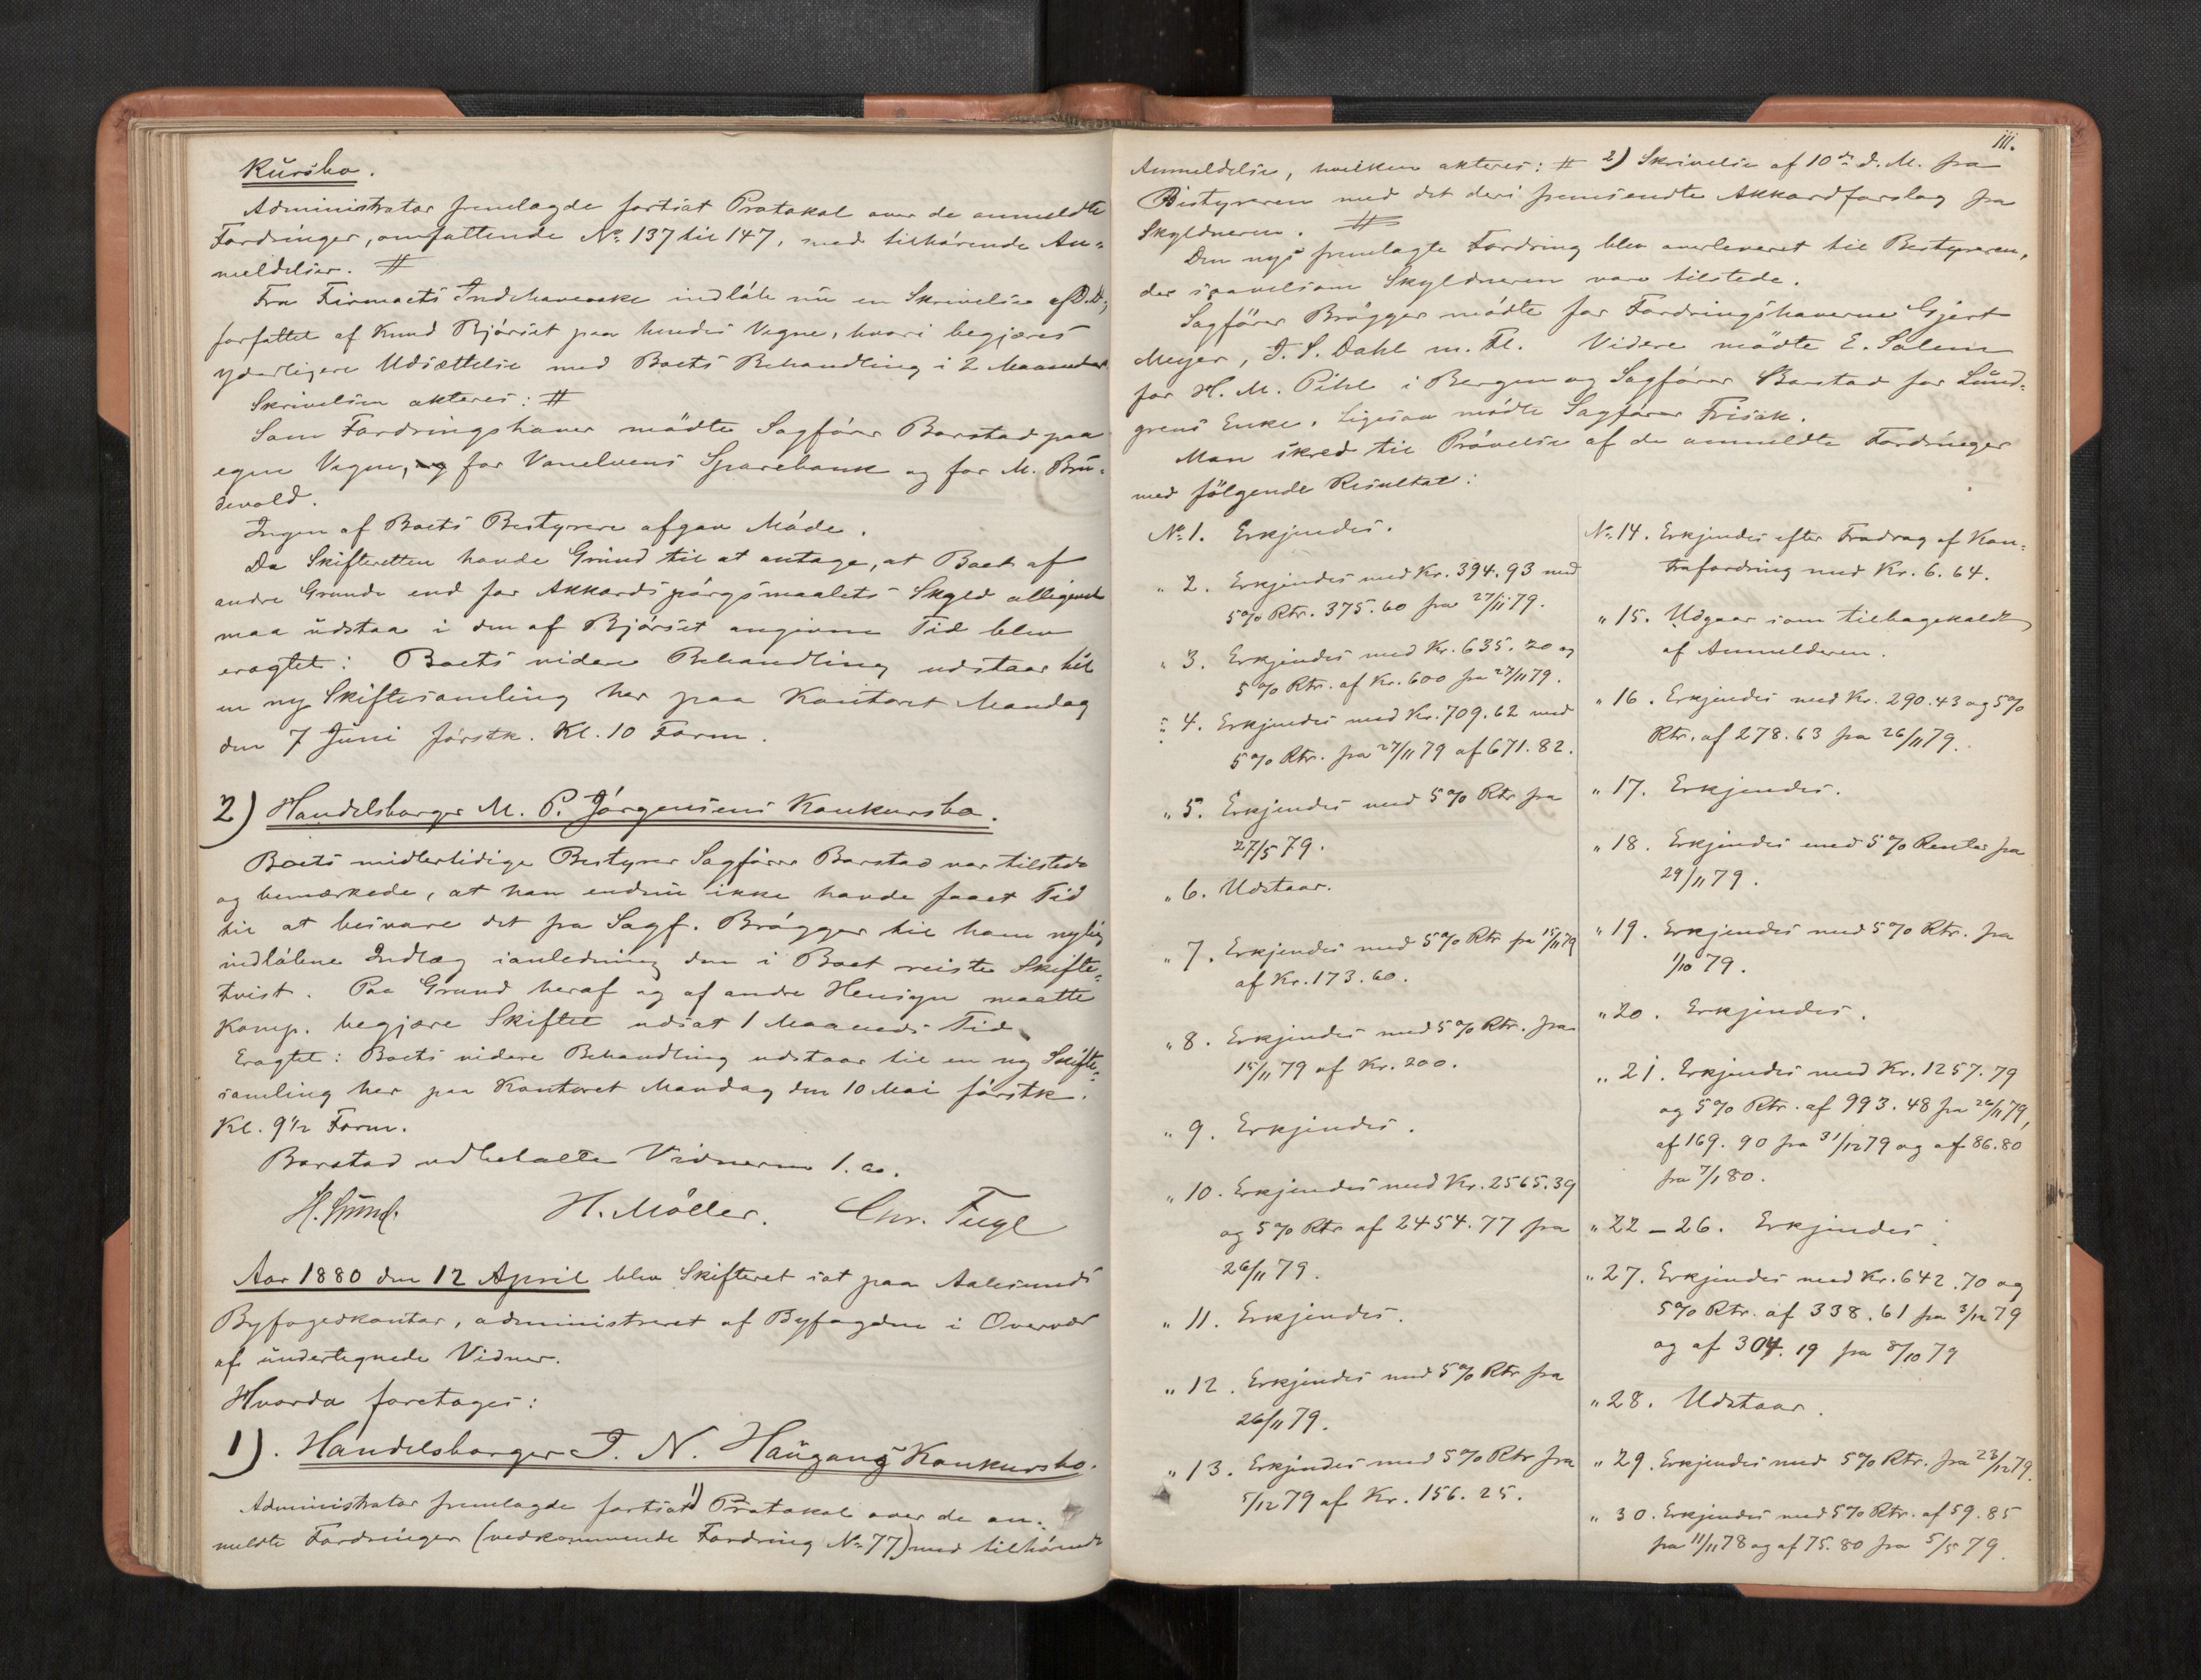 Kursbo.
Administrator fremlagde fortsat Protokol over de anmeldte
Fordringer, omfattende No. 137 til 147, med tilhørende An-
meldelser. #
Fra Firmaets Indehaverske indløb nu en Skrivelse af D.D.,
forfattet af Knud Bjørset paa hendes Vegne, hvori begjæres
yderligere Udsættelse med Boets Behandling i 2 Maaneder
Skrivelsen akteres: #
Som Fordringshaver mødte Sagfører Barstad paa
egne Vegne, og for Vanelvens Sparebank og for M. Bru-
devold.
Ingen af Boets Bestyrere afgav Møde.
Da Skifteretten havde Grund til at antage, at Boet af
andre Grunde end for Akkordspørgsmaalets Skyld alligevel
maa udstaa i den af Bjørset angivne Tid blev
eragtet: Boets videre Behandling udstaar til
en ny Skiftesamling her paa Kontoret Mandag
den 7 Juni førstk. Kl. 10 Form.
2) Handelsborger M. P. Jørgensens Konkursbo.
Boets midlertidige Bestyrer Sagfører Barstad var tilstede
og bemærkede, at han endnu ikke havde faaet Tid
til at besvare det fra Sagf. Brøgger til ham nylig
indløbne Indlæg ianledning den i Boet reiste Skifte-
tvist. Paa Grund heraf og af andre Hensyn maatte
Komp. begjære Skiftet udsat 1 Maaneds Tid
Eragtet: Boets videre Behandling udstaar til en ny Skifte-
samling her paa Kontoret Mandag den 10 Mai førstk.
Kl. 9½ Form.
Barstad udbetalte Vidnerne 1.60.
H. Lund. H. Møller. Chr. Fugl
Aar 1880 den 12 April blev Skifteret sat paa Aalesunds
Byfogedkontor, administreret af Byfogden i Overvær
af undertegnede Vidner.
Hvorda foretoges:
1). Handelsborger J. N. Haugans Konkursbo.
Administrator fremlagde fortsat 1) Protokol over de an-
meldte Fordringer (vedkommende Fordring No. 77) med tilhørende
111.
Anmeldelse, hvilken akteres: # 2) Skrivelse af 10de d. M. fra
Bestyreren med det deri fremsendte Akkordforslag fra
Skyldneren. #
Den nys fremlagte Fordring blev overleveret til Bestyreren,
der saavelsom Skyldneren vare tilstede.
Sagfører Brøgger mødte for Fordringshaverne Gjert
Meyer, J. S. Dahl m. Fl. Videre mødte E. Solem
for H. M. Pihl i Bergen og Sagfører Barstad for Lund-
grens Enke. Ligesaa mødte Sagfører Frisak.
Man skred til Prøvelse af de anmeldte Fordringer
med følgende Resultat:
No. 1. Erkjendes.
" 2. Erkjendes med Kr. 394.93 med
5% Rtr. 375.60 fra 27/11 79.
" 3. Erkjendes med Kr. 635.20 og
5% Rtr. af Kr. 600 fra 27/11 79.
" 4. Erkjendes med Kr. 709.62 med
5% Rtr. fra 27/11 79 af 671.82.
" 5. Erkjendes med 5% Rtr fra
27/5 79.
" 6. Udstaar.
" 7. Erkjendes med 5% Rtr fra 15/11 79
af Kr. 173.60.
" 8. Erkjendes med 5% Rtr. fra
15/11 79 af Kr. 200.
" 9. Erkjendes.
" 10. Erkjendes med Kr. 2565.39
og 5% Rtr af 2454.77 fra
26/11 79.
" 11. Erkjendes.
" 12. Erkjendes med 5% Rtr fra
26/11 79.
" 13. Erkjendes med 5% Rtr fra
5/12 79 af Kr. 156.25.
No. 14. Erkjendes efter Fradrag af Kon-
trafordring med Kr. 6.64.
" 15. Udgaar som tilbagekaldt
af Anmelderen.
" 16. Erkjendes med Kr. 290.43 og 5%
Rtr. af 278.63 fra 26/11 79.
" 17. Erkjendes.
" 18. Erkjendes med 5% Renter fra
29/11 79.
" 19. Erkjendes med 5% Rtr. fra
1/10 79.
" 20. Erkjendes.
" 21. Erkjendes med Kr. 1257.79
og 5% Rtr. af 993.48 fra 26/11 79,
af 169.90 fra 31/12 79 og af 86.80
fra 7/1 80.
" 22 - 26. Erkjendes
" 27. Erkjendes med Kr. 642.70 og
5% Rtr. af 338.61 fra 3/12 79
og af 304.19 fra 8/10 79
" 28. Udstaar.
" 29. Erkjendes med 5% Rtr. fra 23/12 79.
" 30. Erkjendes med 5% Rtr. af 59.85
fra 11/11 78 og af 75.80 fra 5/5 79.